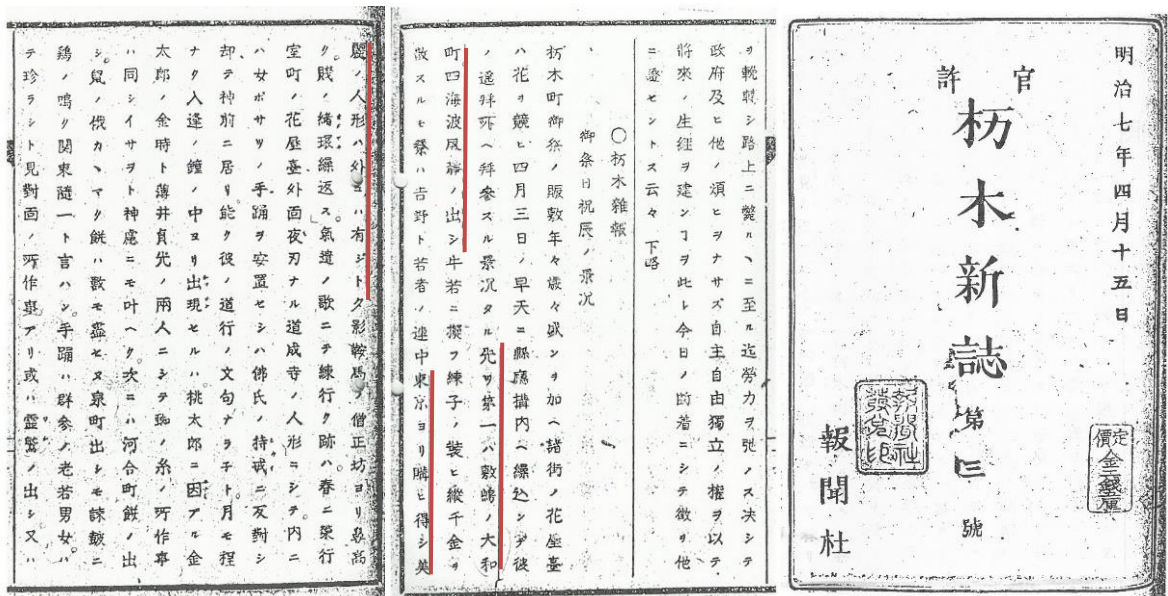 明治七年四月十五日
官許
杤木新誌 第三號
定價金二錢五厘
報聞社
ヲ輓轉シ路上ニ斃ルヽニ至ル迄勞力ヲ弛ノス决シテ
政府及ヒ他ノ煩ヒヲナサズ自主自由獨立ノ權ヲ以テ
將來ノ生經ヲ建ンヿヲ此レ今日ノ斷着ニシテ徴ヲ他
ニ證セントス云々 下略
〇杤木雜報
御祭日祝辰ノ景况
杤木町御祭ノ賑敷年々歳々盛ンヲ加ヘ諸街ノ花屋臺
ハ花ヲ競ヒ四月三日ノ早天ニ縣廳搆内ヘ繰込ンデ彼
ノ遥拜所ヘ拜参スル景况タル先ヅ第一ハ敷嶋ノ大和
町四海波風静ノ出シ牛若ニ擬フ練子ノ装ヒ縦千金ヲ
散スルモ祭ハ吉野ト若者ノ連中東京ヨリ購ヒ得シ美
麗ノ人形ハ外ニハ有ジトタ影鞍馬ノ僧正坊ヨリ最高
ク賤ノ緒環繰返ス。氣遣ノ歌ニテ練行ク跡ハ春ニ榮行
室町ノ花屋臺外面夜刃ナル道成寺ノ人形ニシテ内ニ
ハ女ボサリノ手踊ヲ安置セシハ佛氏ノ持戒ニ反對シ
却テ神前ニ居リ能ク彼ノ道行ノ文句ナラ子ト月モ程
ナク入逢ノ鐘ノ中ヨリ出現セルハ桃太郎ニ因アル金
太郎ノ金時ト薄井貞光ノ兩人ニシテ蜘ノ糸ノ所作事
ハ同シイサヲト神慮ニモ叶ヘク。次ニハ河合町餅ノ出
シ。鼠ノ俄カヽマク餅ハ數モ盡セヌ泉町出シモ諫皷ニ
鶏ノ鳴ク関東随一ト言ハン手踊ハ群参ノ老若男女ハ
テ珍ラシト見對面ノ所作臺アリ或ハ霊鷲ノ出シ又ハ